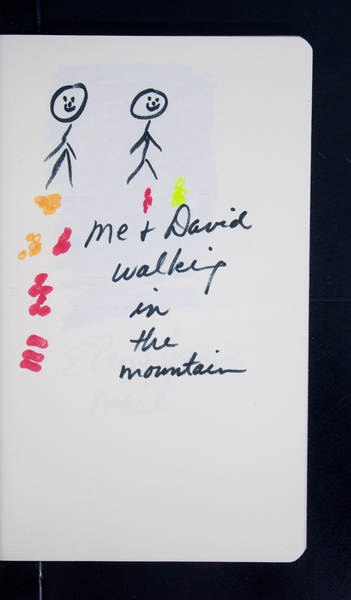 me + David
walking
in
the
mountain